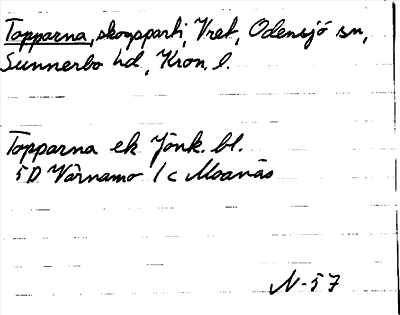 Topparna, skogsparti, Vret, Odensjö sn,
Sunnerbo hd, Kron. l.
Topparna ek Jönk. bl.
5D Värnamo 1c Moanäs
N-57